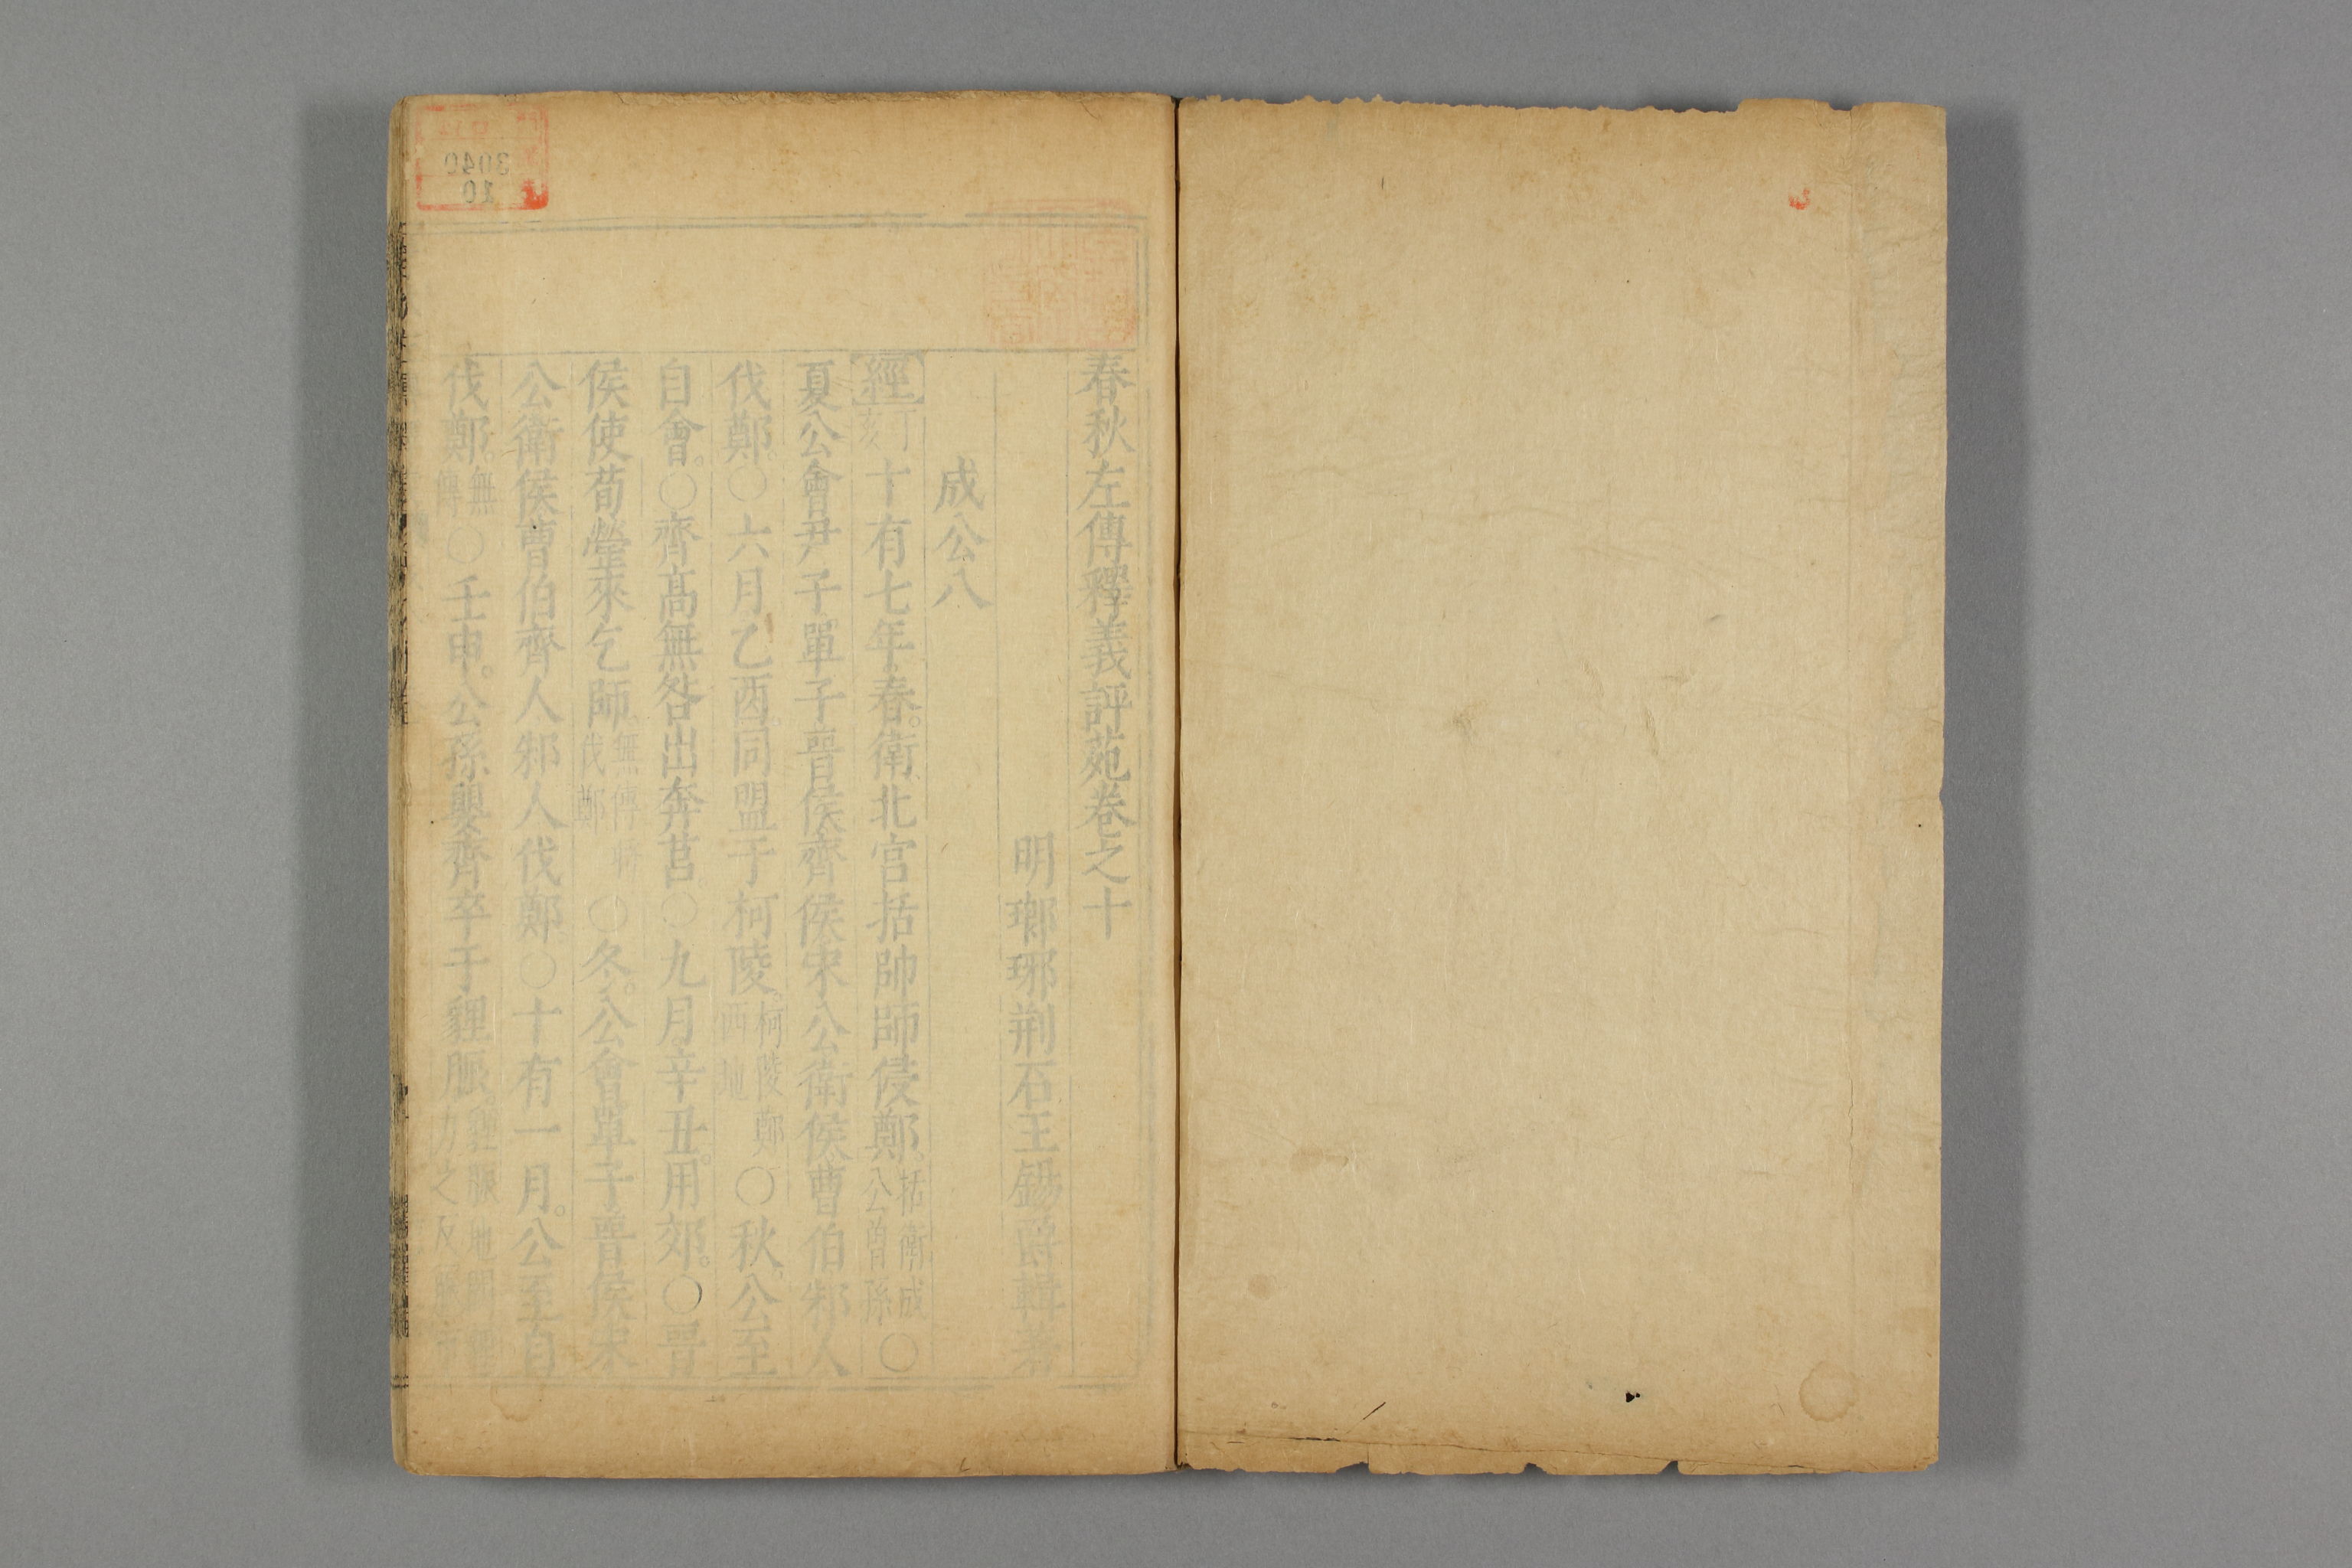 春秋左傳釋義評苑卷之十
明瑯琊荆石王錫爵輯著
成公八
經丁亥十有七年春。衛北宮括帥師侵鄭。括衛成公曾孫○
夏公會尹子單子晉侯齊侯宋公衛侯曹伯邾人
伐鄭○六月乙酉。同盟于柯陵。柯陵鄭西地○秋。公至
自會。○齊高無咎出奔莒○九月辛丑。用郊。○晉
侯使荀罃來乞師。無傳將伐鄭○冬。公會單子晉侯宋
公衛侯曹伯齊人邾人伐鄭○十有一月。公至自
伐鄭。無傳○壬申。公孫嬰齊卒于貍脤。貍脤地
力之反
3040
10